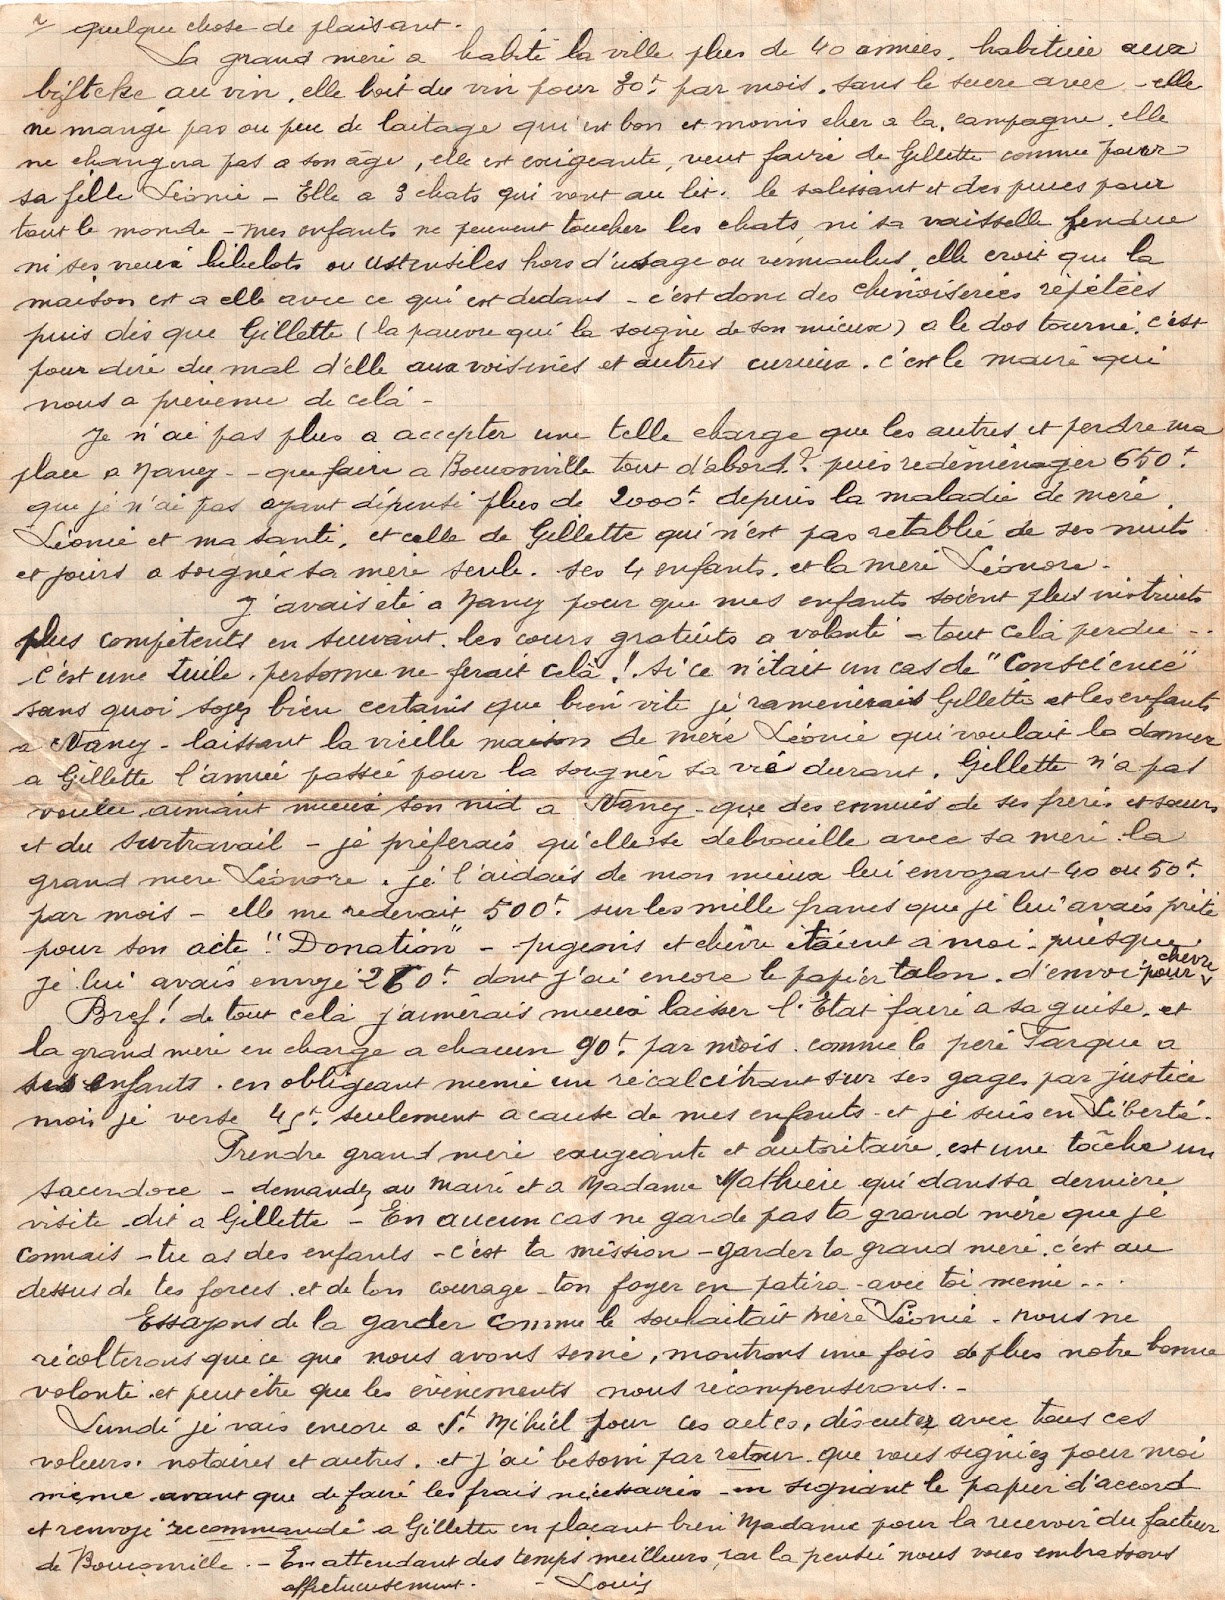 quelque chose de plaisant.
La grand mère a habité la ville plus de 40 années, habituée aux
biftcks, au vin, elle boit du vin pour 30f par mois, sans le sucre avec - elle
ne mange pas ou peu de laitage qui est bon et moins cher a la campagne, elle
ne changera pas a son âge, elle est exigeante, veut faire de Gillette comme pour
sa fille Léonie - Elle a 3 chats qui vont au lit. le salissant et des puces pour
tout le monde - mes enfants ne peuvent toucher les chats, ni sa vaisselle fendue
ni ses vieux bibelots ou ustensiles hors d'usage ou vermoulus, elle croit que la
maison est a elle avec ce qui est dedans - c'est donc des chinoiseries répétées
puis dès que Gillette (la pauvre qui la soigne de son mieux) a le dos tourné, c'est
pour dire du mal d'elle aux voisines et autres curieux. c'est le maire qui
nous a prévenu de celà -
Je n'ai pas plus a accepter une telle charge que les autres et perdre ma
place a Nancy - - que faire a Bouconville tout d'abord? puis redéménager 650f
que je n'ai pas ayant dépensé plus de 2000f depuis la maladie de mère
Léonie et ma santé, et celle de Gillette qui n'est pas retablie de ses nuits
et jours a soigner sa mère seule. ses 4 enfants, et la mère Léonore -
J'avais été a Nancy pour que mes enfants soient plus instruits
plus compétents en suivant les cours gratuits a volonté - tout celà perdu - ..
c'est une tuile, personne ne ferait celà! si ce n'était un cas de "Conscience"
sans quoi soyez bien certains que bien vite je ramènerais Gillette et les enfants
a Nancy - laissant la vieille maison de mère Léonie qui voulait la donner
a Gillette l'année passée pour la soigner sa vie durant. Gillette n'a pas
voulu aimant mieux son nid a Nancy - que des ennuis de ses frères et sœurs
et du surtravail - je préférais qu'elle se debrouille avec sa mère la
grand mère Léonore. je l'aidais de mon mieux lui envoyant 40 ou 50f
par mois - elle me redevait 500f sur les mille francs que je lui avais prêté
pour son acte "Donation" - pigeons et chèvre étaient a moi - puisque
je lui avais envoyé 260f dont j'ai encore le papier talon d'envoi pour chèvre
Bref! de tout celà j'aimerais mieux laisser l'État faire a sa guise. et
la grand mère en charge a chacun 90f par mois. comme le père Farque a
ses enfants. en obligeant même un récalcitrant sur ses gages par justice
moi je verse 45f seulement a cause de mes enfants - et je suis en Liberté -
Prendre grand mère exigeante et autoritaire, est une tâche un
sacerdoce - demandez au maire et a Madame Mathieu qui dans sa dernière
visite dit a Gillette - En aucun cas ne garde pas ta grand mère que je
connais - tu as des enfants - c'est ta mission - garder ta grand mère, c'est au
dessus de tes forces, et de ton courage - ton foyer en patira - avec toi même - ..
Essayons de la garder comme le souhaitait mère Léonie - nous ne
récolterons que ce que nous avons semé, montrons une fois de plus notre bonne
volonté, et peut être que les événements nous récompenserons. -
Lundi je vais encore a St Mihiel pour ces actes, discuter avec tous ces
voleurs, notaires et autres, et j'ai besoin par retour que vous signiez pour moi
même avant que de faire les frais nécessaires - en signant le papier d'accord
et renvoyé recommandé a Gillette en plaçant bien Madame pour la recevoir du facteur
de Bouconville. - En attendant des temps meilleurs, par la pensée nous vous embrassons
affectueusement. - Louis